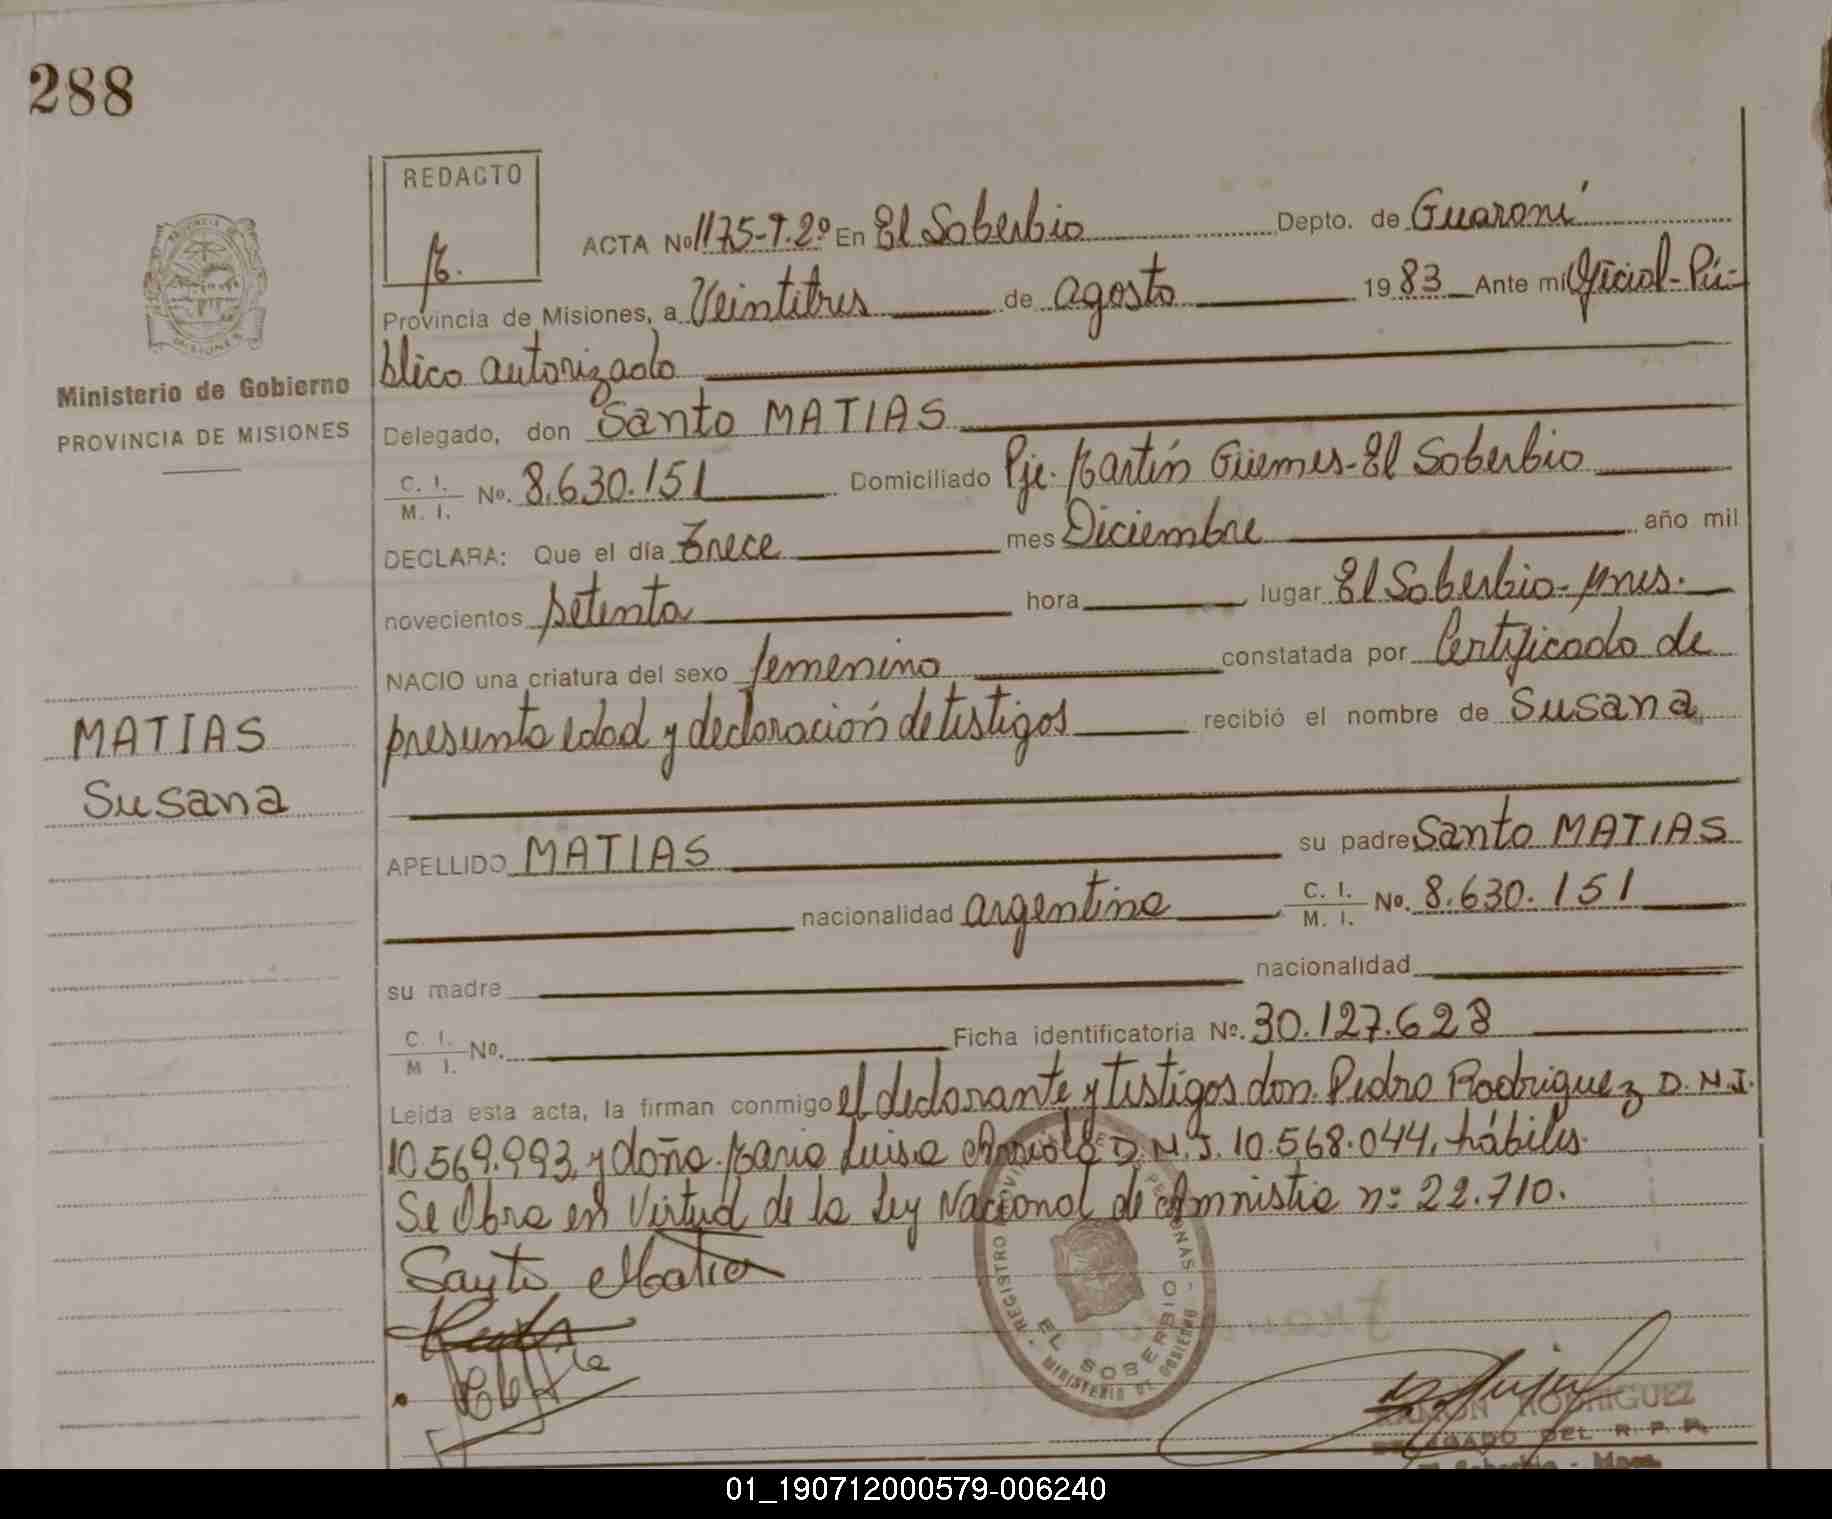 288
REDACTO
ACTA No 1175-T.2º En El Soberbio Depto. de Guaraní
Provincia de Misiones, a Veintitres de agosto 1983 Ante mi Oficial-Pú-
blico autorizado
Ministerio de Gobierno
PROVINCIA DE MISIONES
Delegado, don Santo MATIAS
C. I. M. I. No. 8.630.151 Domiciliado Pje. Martín Güemes-El Soberbio
DECLARA: Que el día Trece mes Diciembre año mil
novecientos setenta hora lugar El Soberbio-Mnes.
NACIO una criatura del sexo femenino constatada por Certificado de
presunta edad y declaración de testigos recibió el nombre de Susana
MATIAS
Susana
APELLIDO MATIAS su padre Santo MATIAS
nacionalidad argentina C. I. M. I. No. 8.630.151
su madre nacionalidad
C. I. M I. No. Ficha identificatoria Nº. 30.127.628
Leida esta acta, la firman conmigo el declarante y testigos don. Pedro Rodriguez D.N.I.
10.569.993, y doña. Maria Luisa D.N.I. 10.568.044, hábiles.
Se Obra en Virtud de la Ley Nacional de Amnistia nº 22.710.
Santo Matia
REGISTRO PROVINCIAL DE PERSONAS - EL SOBERBIO - MINISTERIO DE GOBIERNO
RAMON RODRIGUEZ
DELEGADO DEL R. P. P.
El Soberbio - Mnes.
01_190712000579-006240